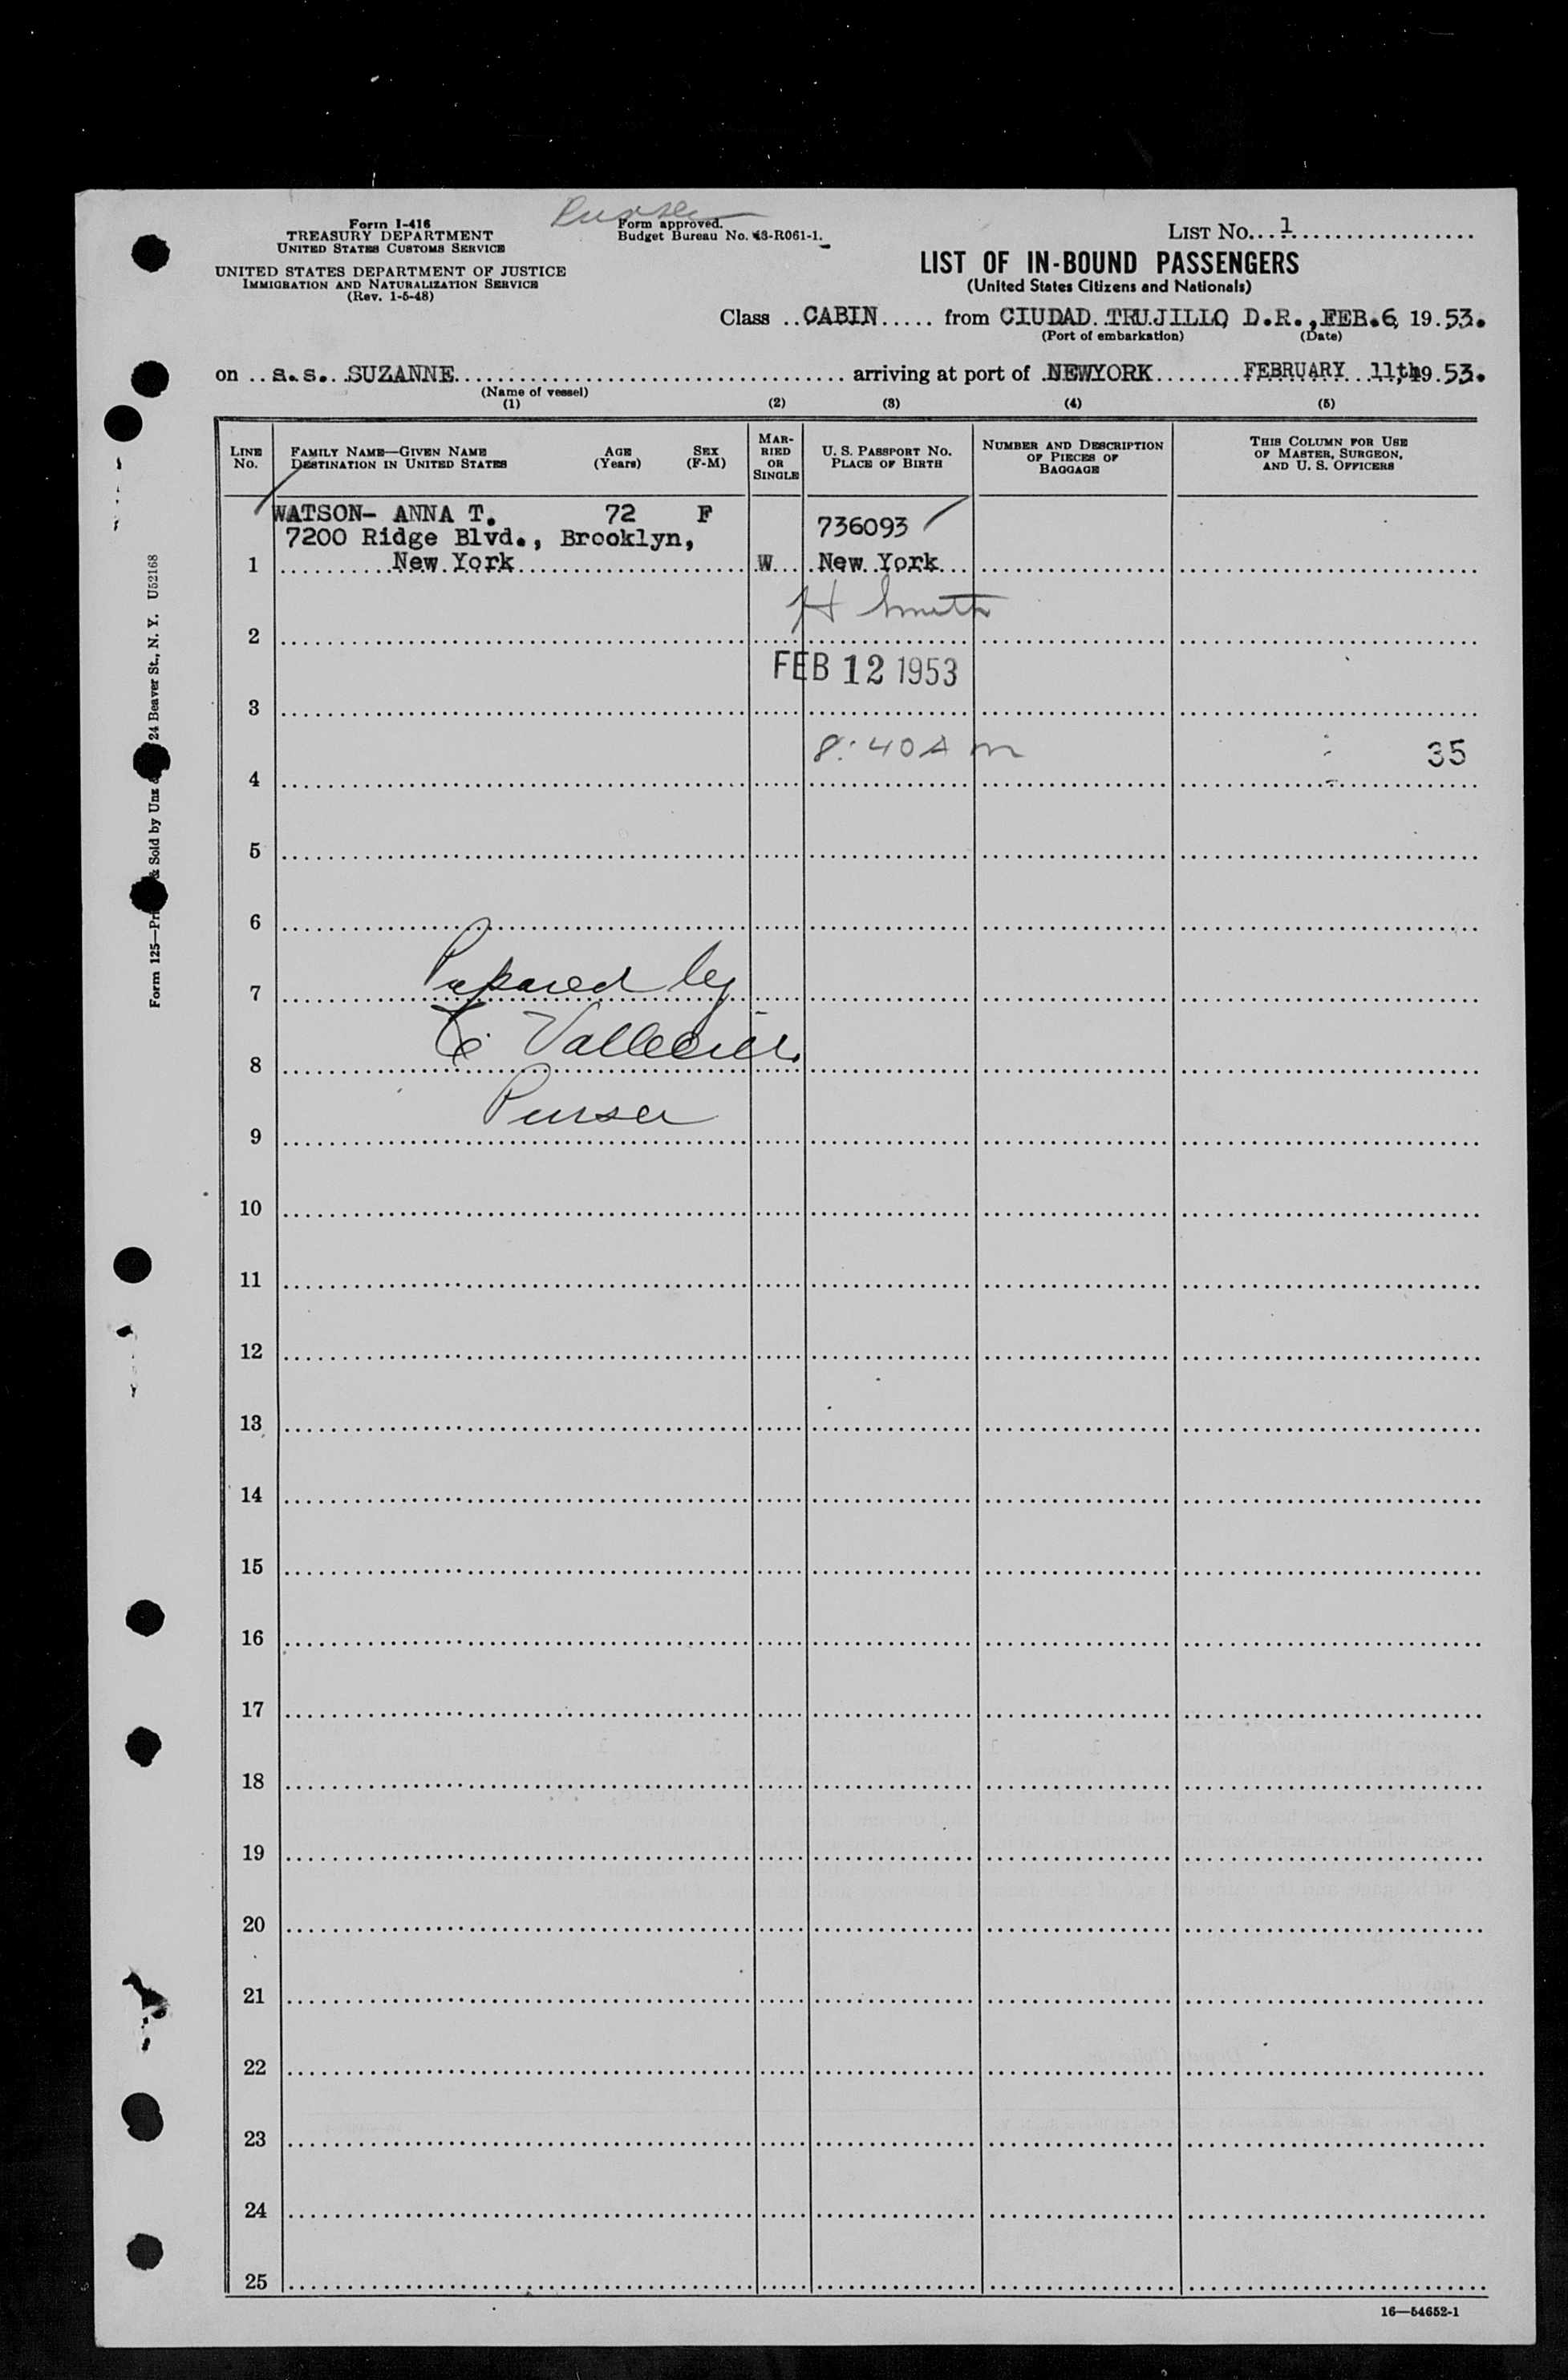 Purser
Form I-416
TREASURY DEPARTMENT
UNITED STATES CUSTOMS SERVICE
UNITED STATES DEPARTMENT OF JUSTICE
IMMIGRATION AND NATURALIZATION SERVICE
(Rev. 1-5-48)
Form approved.
Budget Bureau No. 43-R061-1.
LIST No. 1
LIST OF IN-BOUND PASSENGERS
(United States Citizens and Nationals)
Class CABIN from CIUDAD TRUJILLO D.R., FEB.6, 19 53.
(Port of embarkation) (Date)
on s.s. SUZANNE arriving at port of NEWYORK FEBRUARY 11th, 19 53.
(Name of vessel)
(1) (2) (3) (4) (5)
LINE No.
FAMILY NAME—GIVEN NAME AGE (Years) SEX (F-M)
DESTINATION IN UNITED STATES
MARRIED OR SINGLE
U. S. PASSPORT No.
PLACE OF BIRTH
NUMBER AND DESCRIPTION OF PIECES OF BAGGAGE
THIS COLUMN FOR USE OF MASTER, SURGEON, AND U. S. OFFICERS
WATSON- ANNA T. 72 F 736093
7200 Ridge Blvd., Brooklyn,
1 New York W New York
H Smith
2
FEB 12 1953
3
8:40 A m 35
4
5
6
Prepared by
7
Purser
8
9
10
11
12
13
14
15
16
17
18
19
20
21
22
23
24
25
16—54652-1
Form 125—Pri & Sold by Unz 24 Beaver St., N. Y. U52168